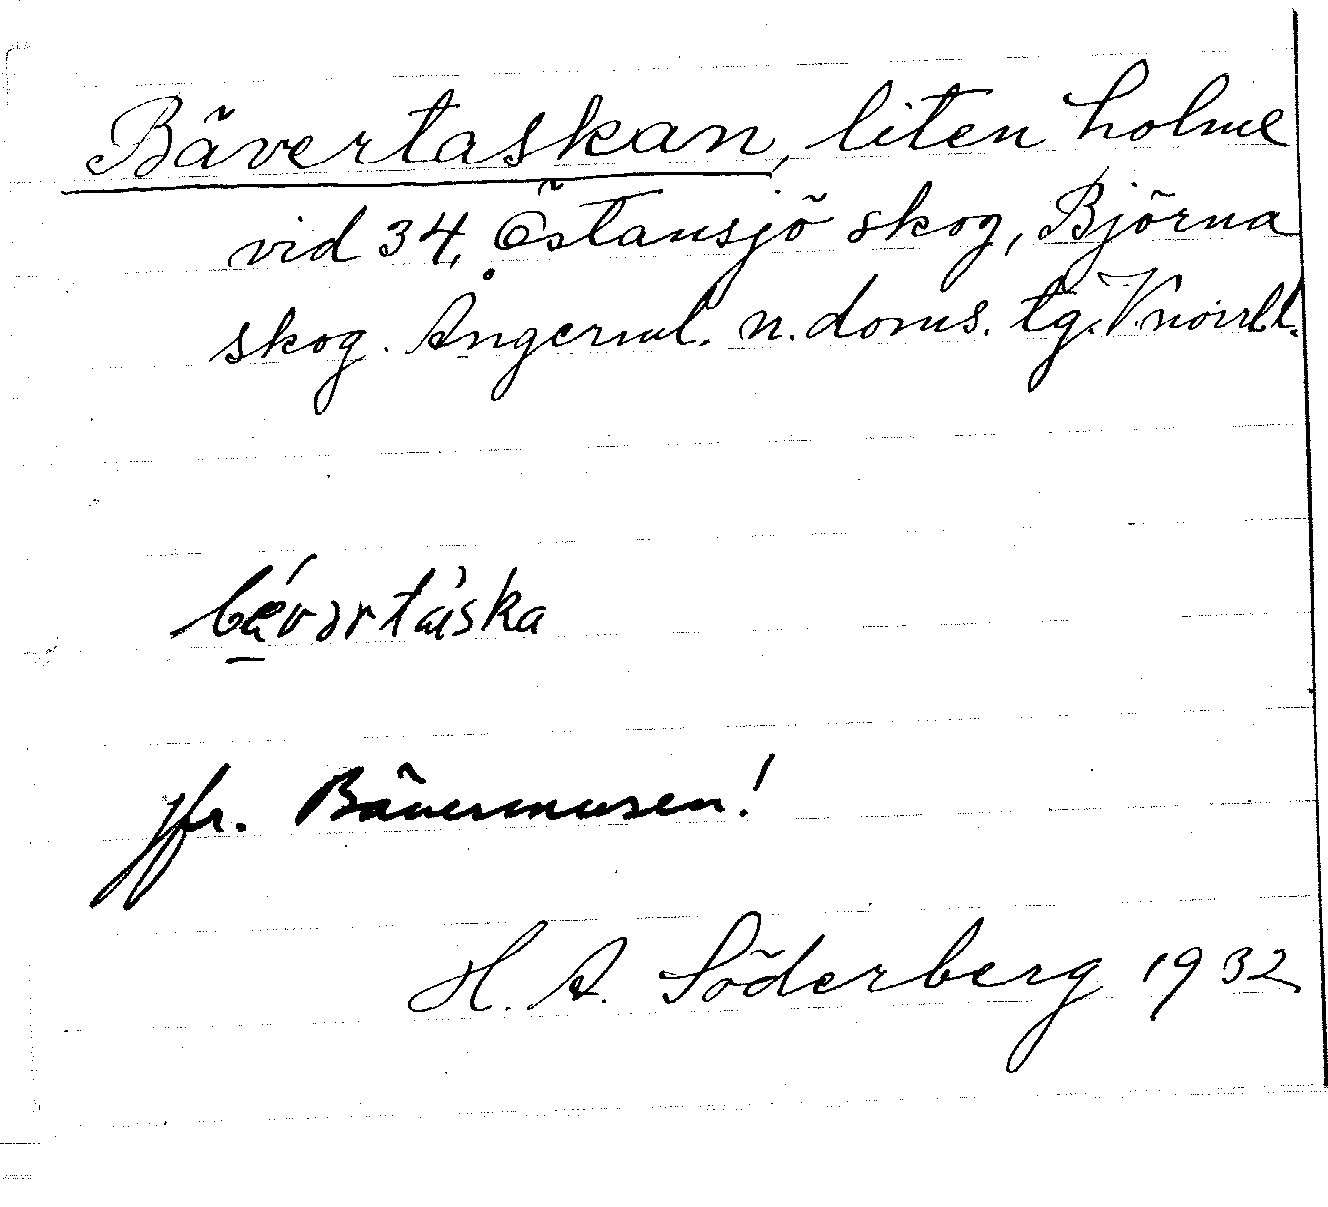 Bävertaskan, liten holme
vid 34, Östansjö skog, Björna
skog. Ångerml. n. doms. tg. V norrl.
bǽvərtàska
jfr. Bävermusen!
H. A. Söderberg 1932